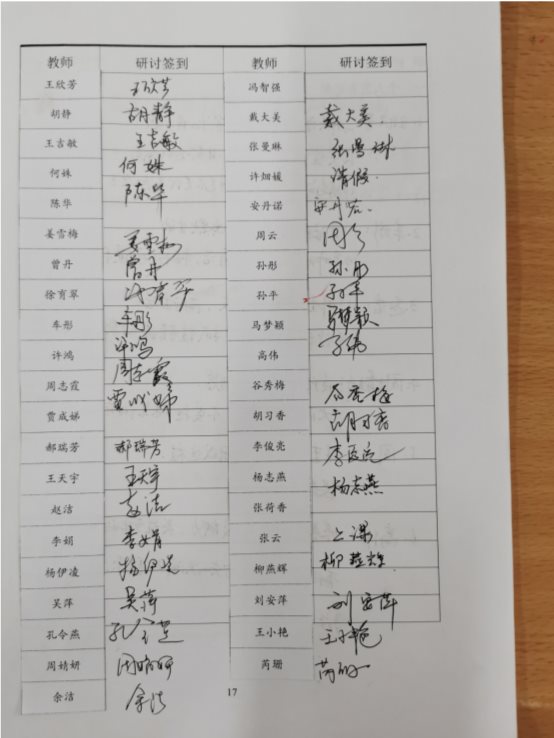 教师 研讨签到 教师 研讨签到
王欣芳 王欣芳 冯智强
胡静 胡静 戴大美 戴大美
王吉敏 王吉敏 张曼琳 张曼琳
何姝 何姝 许烟媛 请假
陈华 陈华 安丹诺 安丹诺
姜雪梅 姜雪梅 周云 周云
曾丹 曾丹 孙彤 孙彤
徐育翠 孙平 孙平
车彤 车彤 马梦颖 马梦颖
许鸿 许鸿 高伟
周志霞 周志霞 谷秀梅 谷秀梅
贾成娣 贾成娣 胡习香 胡习香
郝瑞芳 郝瑞芳 李俊亮 李俊亮
王天宇 王天宇 杨志燕 杨志燕
赵洁 赵洁 张荷香
李娟 李娟 张云 上课
杨伊凌 杨伊凌 柳燕辉 柳燕辉
吴萍 吴萍 刘安萍 刘安萍
孔令燕 孔令燕 王小艳 王小艳
周婧妍 周婧妍 芮珊 芮珊
余洁 余洁
17